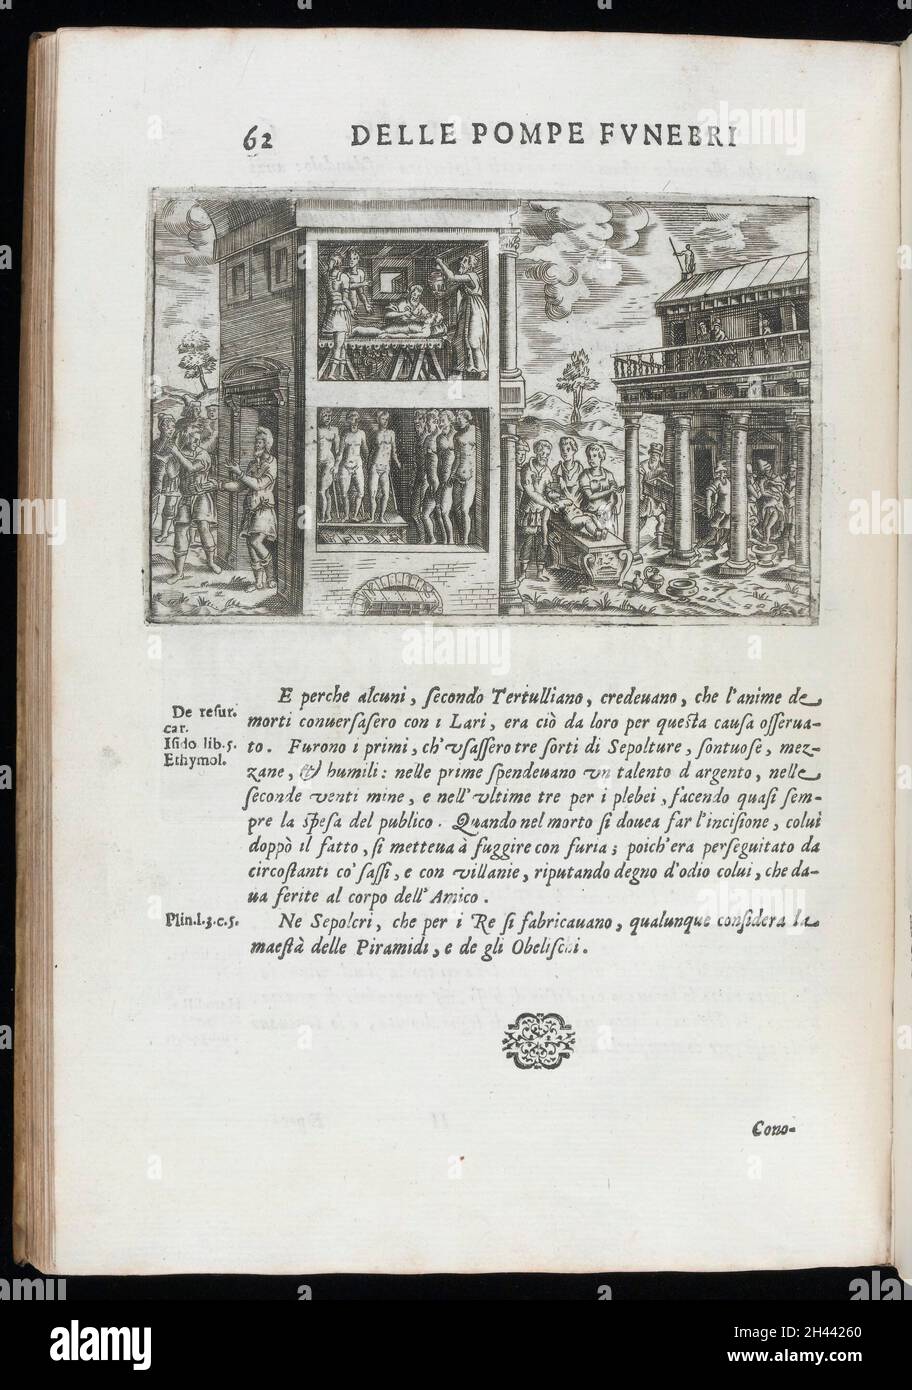 62 DELLE POMPE FVNEBRI
E perche alcuni, secondo Tertulliano, credeuano, che l'anime de
De resur. car. morti conuersasero con i Lari, era ciò da loro per questa causa osserua-
Isido lib. 5. to. Furono i primi, ch'vsassero tre sorti di Sepolture, sontuose, mez-
Ethymol. zane, & humili: nelle prime spendeuano vn talento d argento, nelle
seconde venti mine, e nell'vltime tre per i plebei, facendo quasi sem-
pre la spesa del publico. Quando nel morto si douea far l'incisione, colui
doppò il fatto, si metteua à fuggire con furia; poich'era perseguitato da
circostanti co' sassi, e con villanie, riputando degno d'odio colui, che da-
ua ferite al corpo dell'Amico.
Plin. l. 3. c. 5. Ne Sepolcri, che per i Re si fabricauano, qualunque considera la
maestà delle Piramidi, e de gli Obelischi.
Cono-
alamy
Image ID: 2H44260
www.alamy.com